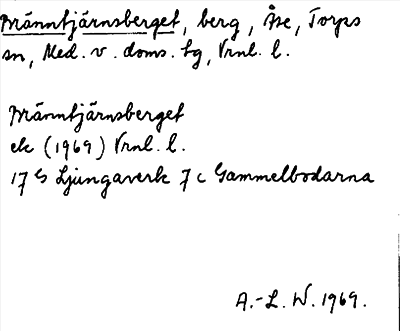 Bränntjärnsberget, berg, Åse, Torps
sn, Med. v. doms. tg, Vrnl. l.
Bränntjärnsberget
ek (1969) Vrnl. l.
17 G Ljungaverk 7 c Gammelbodarna
A.-L. W. 1969.